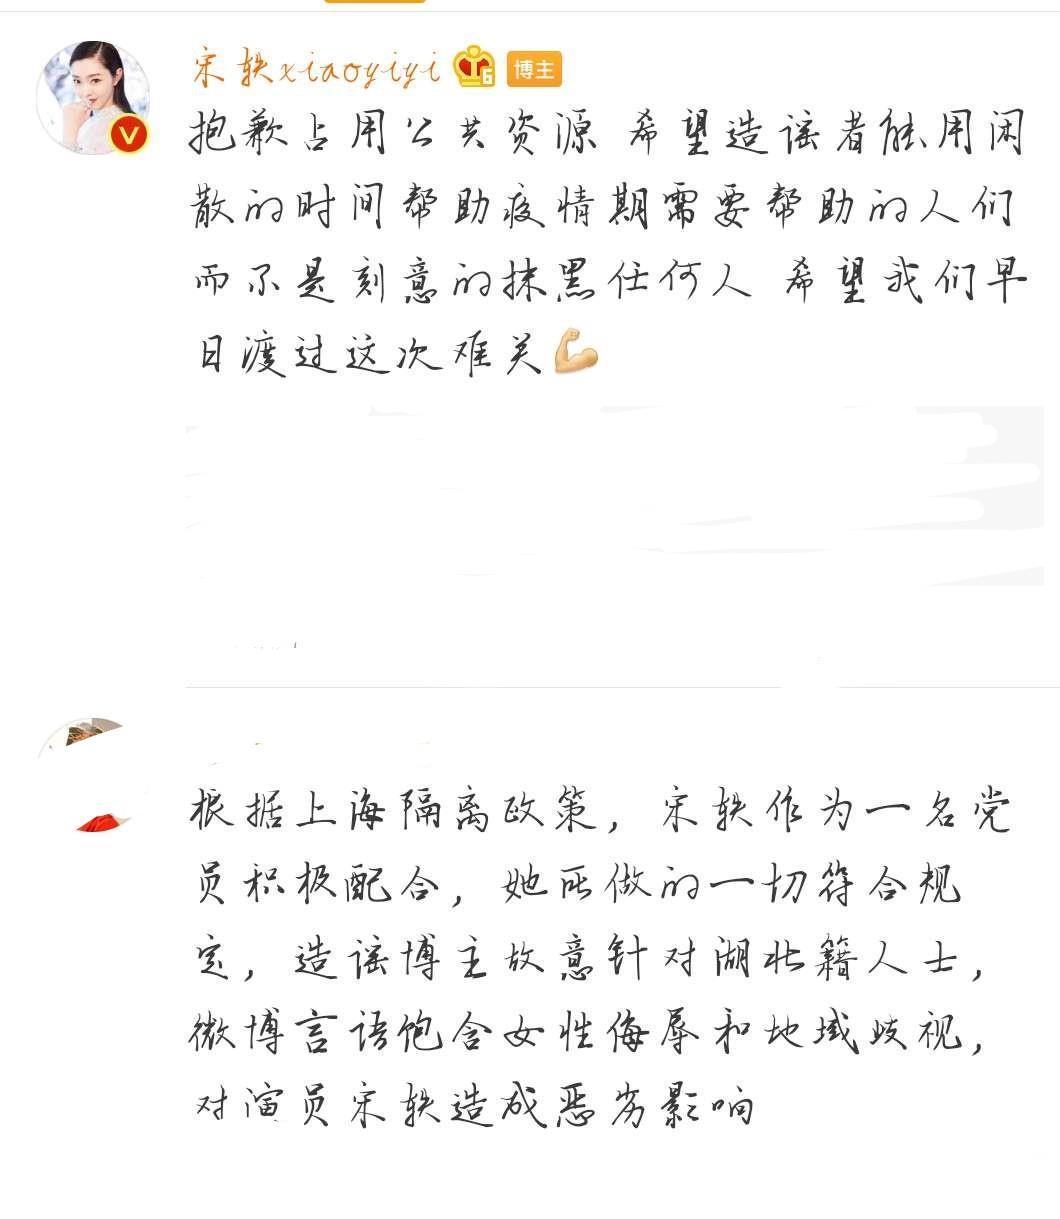 宋轶xiaoyiyi 6 博主
抱歉占用公共资源 希望造谣者能用闲
散的时间帮助疫情期需要帮助的人们
而不是刻意的抹黑任何人 希望我们早
日渡过这次难关💪
根据上海隔离政策，宋轶作为一名党
员积极配合，她所做的一切符合规
定，造谣博主故意针对湖北籍人士，
微博言语饱含女性侮辱和地域歧视，
对演员宋轶造成恶劣影响